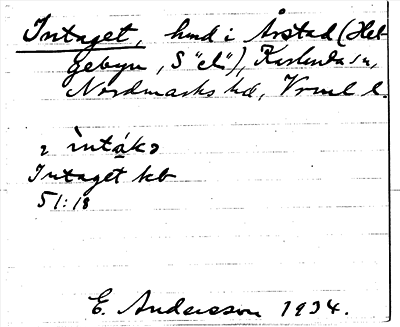 Intaget, hmd i Årstad (Hel-
gebyn, S "el"), Karlanda sn,
Nordmarks hd, Vrml l.
2 ìntákɔ
Intaget kb
51:18
E. Andersson 1934.